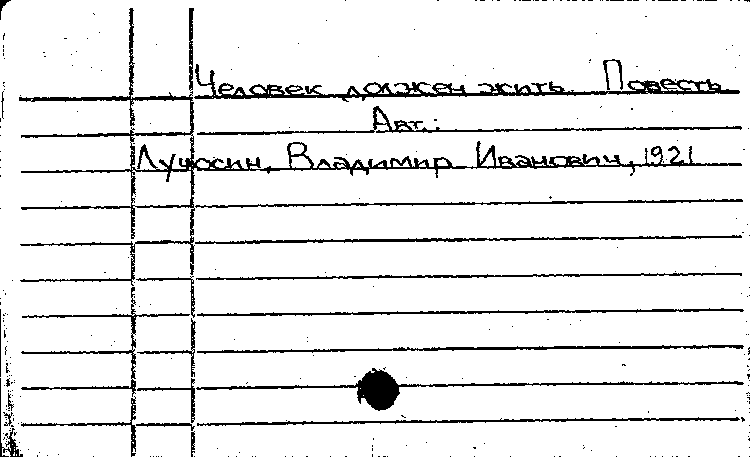 Человек должен жить. Повесть
Авт.:
Лучосин, Владимир Иванович, 1921